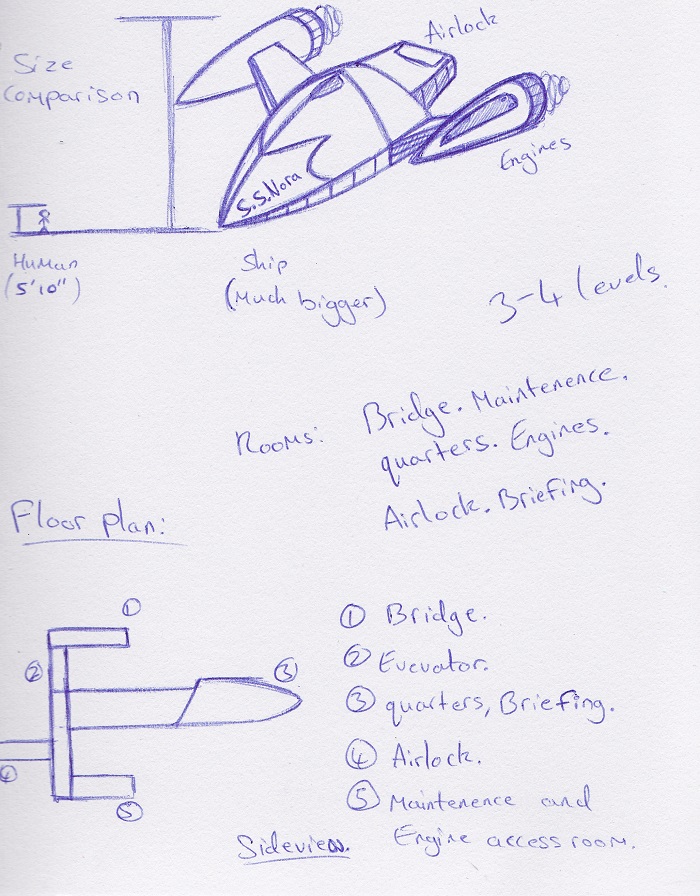 Size
Comparison
Airlock
S.S.Nora
Engines
Human
(5'10")
Ship
(Much bigger)
3-4 levels.
Rooms: Bridge. Maintenence.
quarters. Engines.
Airlock. Briefing.
Floor plan:
① ② ③ ④ ⑤
① Bridge.
② Evevator.
③ quarters, Briefing.
④ Airlock.
⑤ Maintenence and
Engine access room.
Sideview.